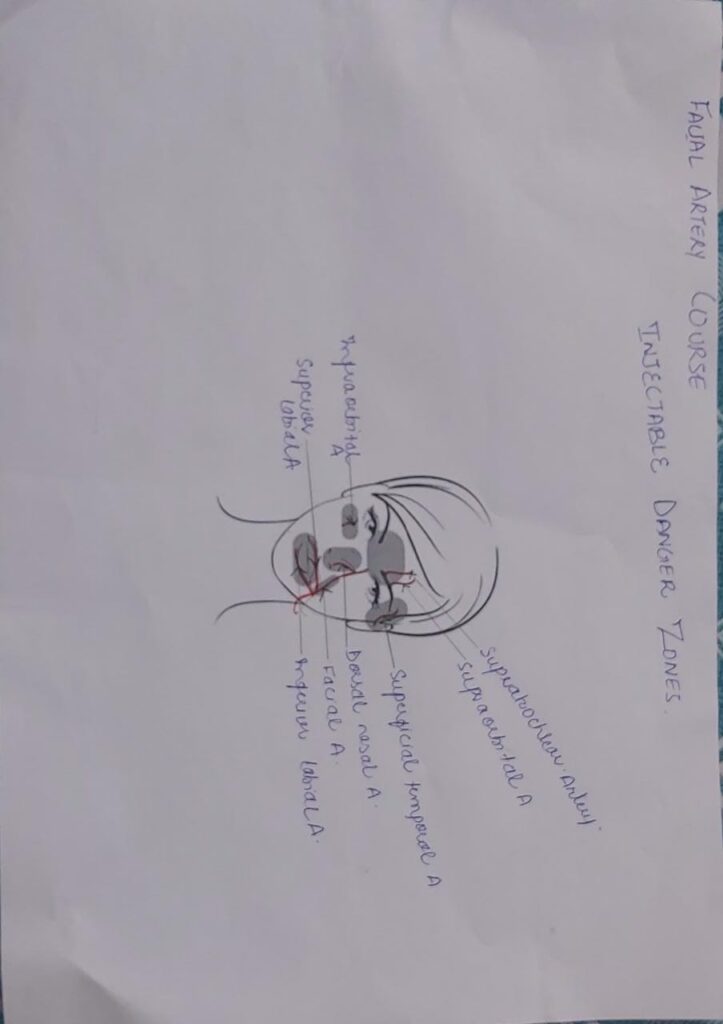 FACIAL ARTERY COURSE
INJECTABLE DANGER ZONES.
Supratrochlear Artery.
Supraorbital A
Superficial temporal A
Dorsal nasal A.
Facial A.
Inferior labial A.
Infraorbital
A
Superior
labial A